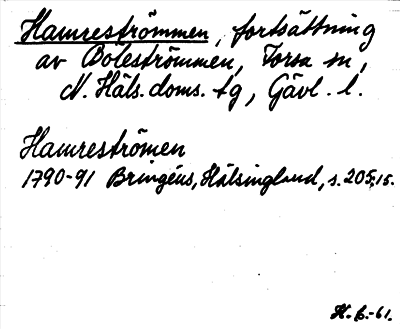 Hamreströmmen, fortsättning
av Böleströmmen, Torsa sn,
N. Häls. doms. tg, Gävl. l.
Hamreströmen
1790-91 Bringéus, Hälsingland, s. 205,15.
H. G.-61.